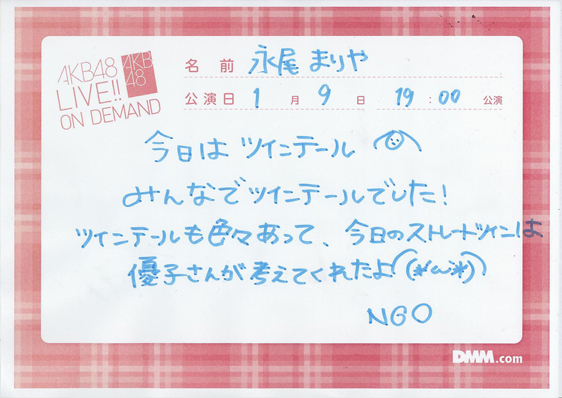 AKB48
LIVE!!
ON DEMAND
AKB
48
名前 永尾まりや
公演日 1月9日 19:00 公演
今日はツインテール
みんなでツインテールでした!
ツインテールも色々あって、今日のストレートツインは
優子さんが考えてくれたよ((*´ω`*))
NGO
DMM.com